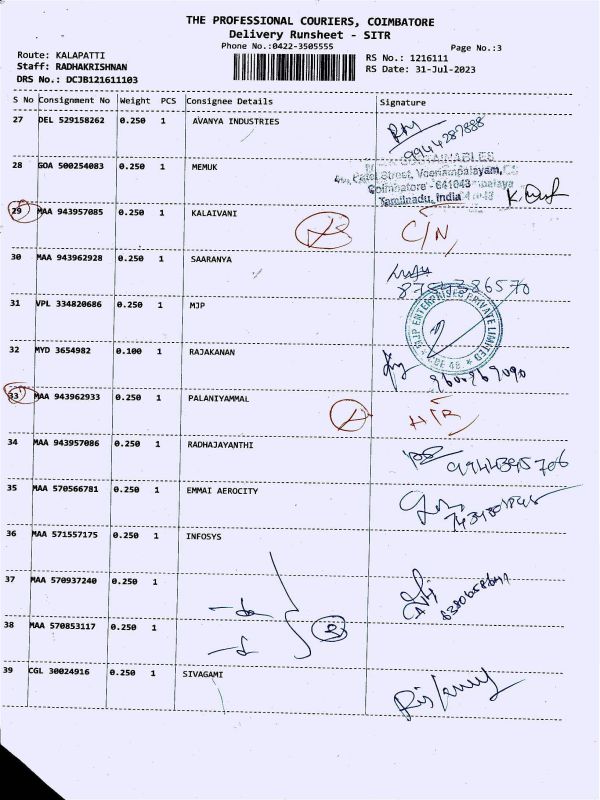 THE PROFESSIONAL COURIERS, COIMBATORE
Delivery Runsheet - SITR
Phone No.:0422-3505555
Page No.:3
Route: KALAPATTI
RS No.: 1216111
Staff: RADHAKRISHNAN
RS Date: 31-Jul-2023
DRS No.: DCJB121611103
S No Consignment No Weight PCS Consignee Details Signature
27 DEL 529158262 0.250 1 AVANYA INDUSTRIES
9944287888
28 GOA 500254083 0.250 1 MEMUK
Street, Veeriampalayam,
Coimbatore - 641048
Tamilnadu, India
29 MAA 943957085 0.250 1 KALAIVANI
C/N
30 MAA 943962928 0.250 1 SAARANYA
31 VPL 334820686 0.250 1 MJP
MJP ENTERPRISES PRIVATE LIMITED
CBE 48
32 MYD 3654982 0.100 1 RAJAKANAN
9600269090
33 MAA 943962933 0.250 1 PALANIYAMMAL
34 MAA 943957086 0.250 1 RADHAJAYANTHI
9944395706
35 MAA 570566781 0.250 1 EMMAI AEROCITY
36 MAA 571557175 0.250 1 INFOSYS
37 MAA 570937240 0.250 1
-do-
3
38 MAA 570853117 0.250 1
39 CGL 30024916 0.250 1 SIVAGAMI